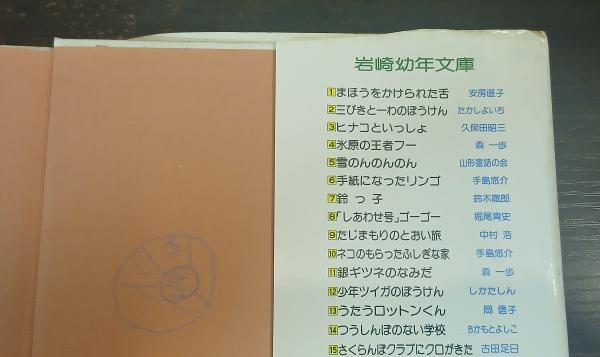 岩崎幼年文庫
1 まほうをかけられた舌 安房直子
2 三びきと一わのぼうけん たかしよいち
3 ヒナコといっしょ 久保田昭三
4 氷原の王者フー 森 一歩
5 雪のんのんのん 山形童話の会
6 手紙になったリンゴ 手島悠介
7 鈴っ子 鈴木徹郎
8 「しあわせ号」ゴーゴー 堀尾青史
9 たじまもりのとおい旅 中村 浩
10 ネコのもらったふしぎな家 手島悠介
11 銀ギツネのなみだ 森 一歩
12 少年ツイガのぼうけん しかたしん
13 うたうロットンくん 岡 信子
14 つうしんぼのない学校 おかもとよしこ
15 さくらんぼクラブにクロがきた 古田足日